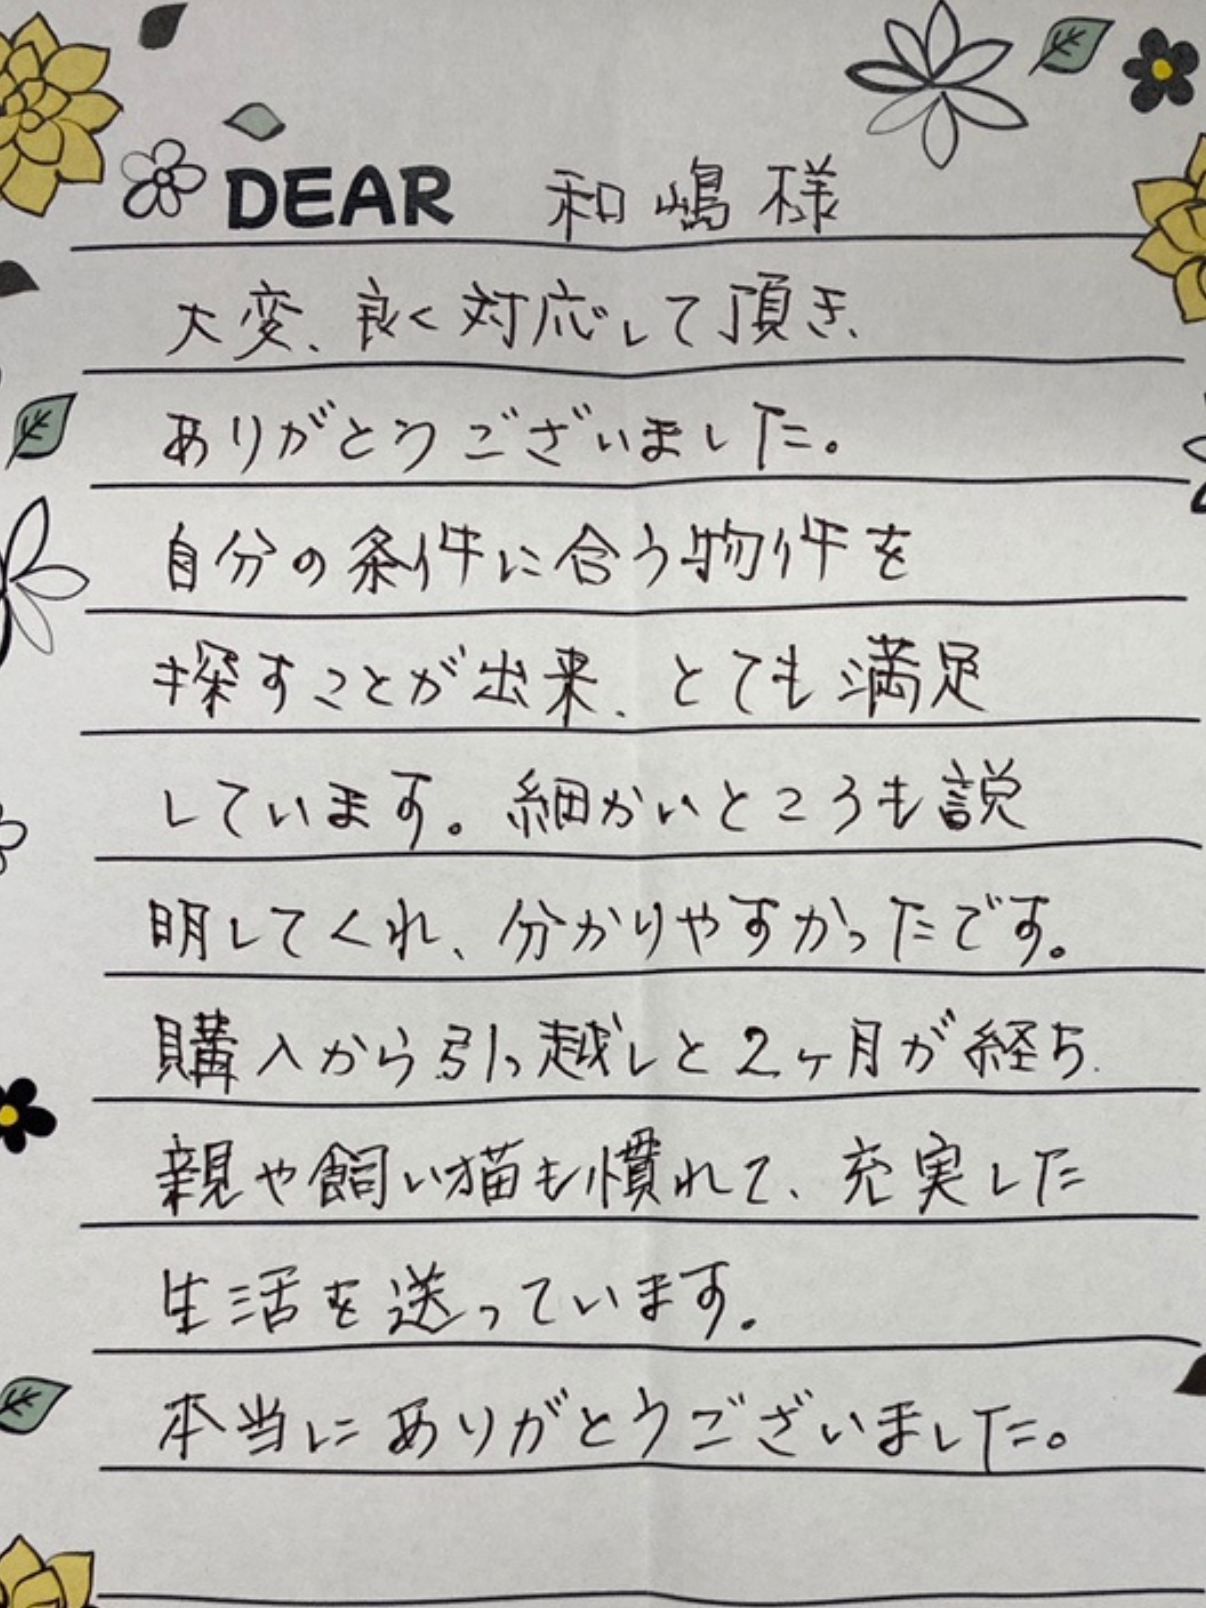 DEAR 和嶋様
大変、良く対応して頂き、
ありがとうございました。
自分の条件に合う物件を
探すことが出来、とても満足
しています。細かいところも説
明してくれ、分かりやすかったです。
購入から引っ越しと2ヶ月が経ち、
親や飼い猫も慣れて、充実した
生活を送っています。
本当にありがとうございました。